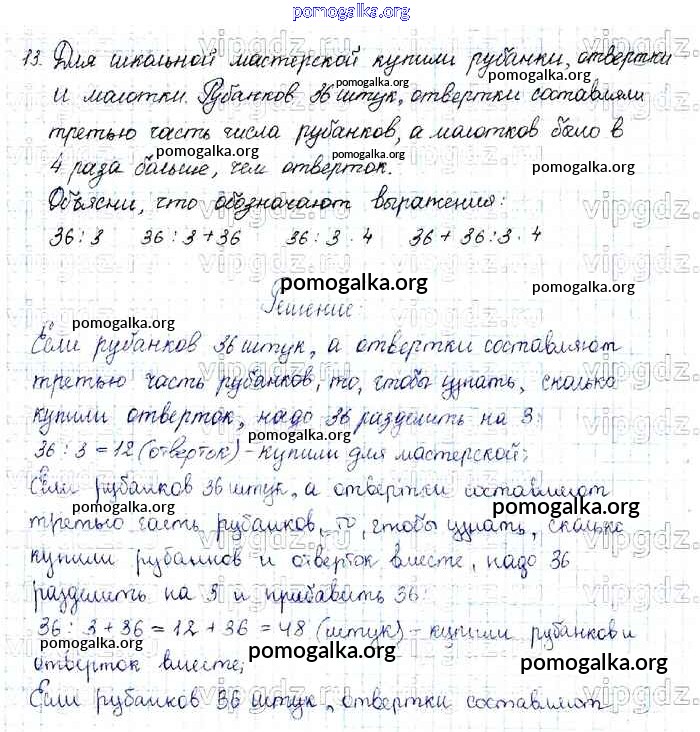 pomogalka.org
13. Для школьной мастерской купили рубанки, отвертки
pomogalka.org
и молотки. Рубанков 36 штук, отвертки составляли
третью часть числа рубанков, а молотков было в
pomogalka.org
4 раза больше, чем отверток.
pomogalka.org
Объясни, что обозначают выражения:
36 : 3 36 : 3 + 36 36 : 3 · 4 36 + 36 : 3 · 4
pomogalka.org
Решение:
pomogalka.org
Если рубанков 36 штук, а отвертки составляют
третью часть рубанков, то, чтобы узнать, сколько
pomogalka.org
купили отверток, надо 36 разделить на 3:
pomogalka.org
36 : 3 = 12 (отверток) - купили для мастерской;
Если рубанков 36 штук, а отвертки составляют
pomogalka.org pomogalka.org
третью часть рубанков, то, чтобы узнать, сколько
купили рубанков и отверток вместе, надо 36
разделить на 3 и прибавить 36:
pomogalka.org
36 : 3 + 36 = 12 + 36 = 48 (штук) - купили рубанков и
pomogalka.org pomogalka.org
отверток вместе;
Если рубанков 36 штук, отвертки составляют